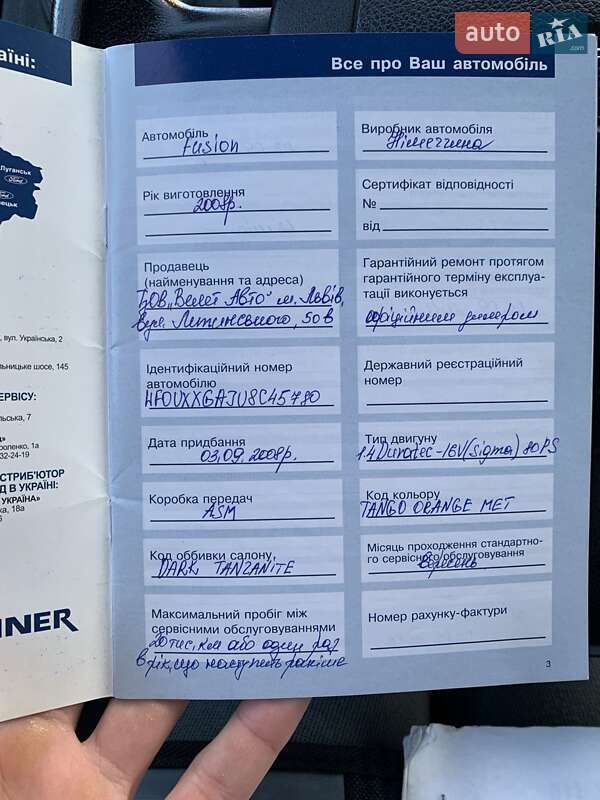 auto RIA .com
аїні:
Луганськ
Ford
Ford
нецьк
, вул. Українська, 2
льницьке шосе, 145
ЕРВІСУ:
льська, 7
роленко, 1а
32-24-19
СТРИБ'ЮТОР
Д В УКРАЇНІ:
УКРАЇНА»
ка, 18а
6
INER
Все про Ваш автомобіль
Автомобіль
Fusion
Рік виготовлення
2008р.
Продавець
(найменування та адреса)
ТОВ „Велет Авто" м. Львів,
вул. Липинського, 50в
Ідентифікаційний номер
автомобілю
WF0UXXGAJU8C45780
Дата придбання
03.09.2008р.
Коробка передач
ASM
Код оббивки салону
DARK TANZANITE
Максимальний пробіг між
сервісними обслуговуваннями
20 тис. км або один раз
в рік, що наступить раніше
Виробник автомобіля
Німеччина
Сертифікат відповідності
№
від
Гарантійний ремонт протягом
гарантійного терміну експлуа-
тації виконується
офіційним дилером
Державний реєстраційний
номер
Тип двигуну
1.4 Duratec-16V(Sigma) 80PS
Код кольору
TANGO ORANGE MET
Місяць проходження стандартно-
го сервісного обслуговування
Вересень
Номер рахунку-фактури
3